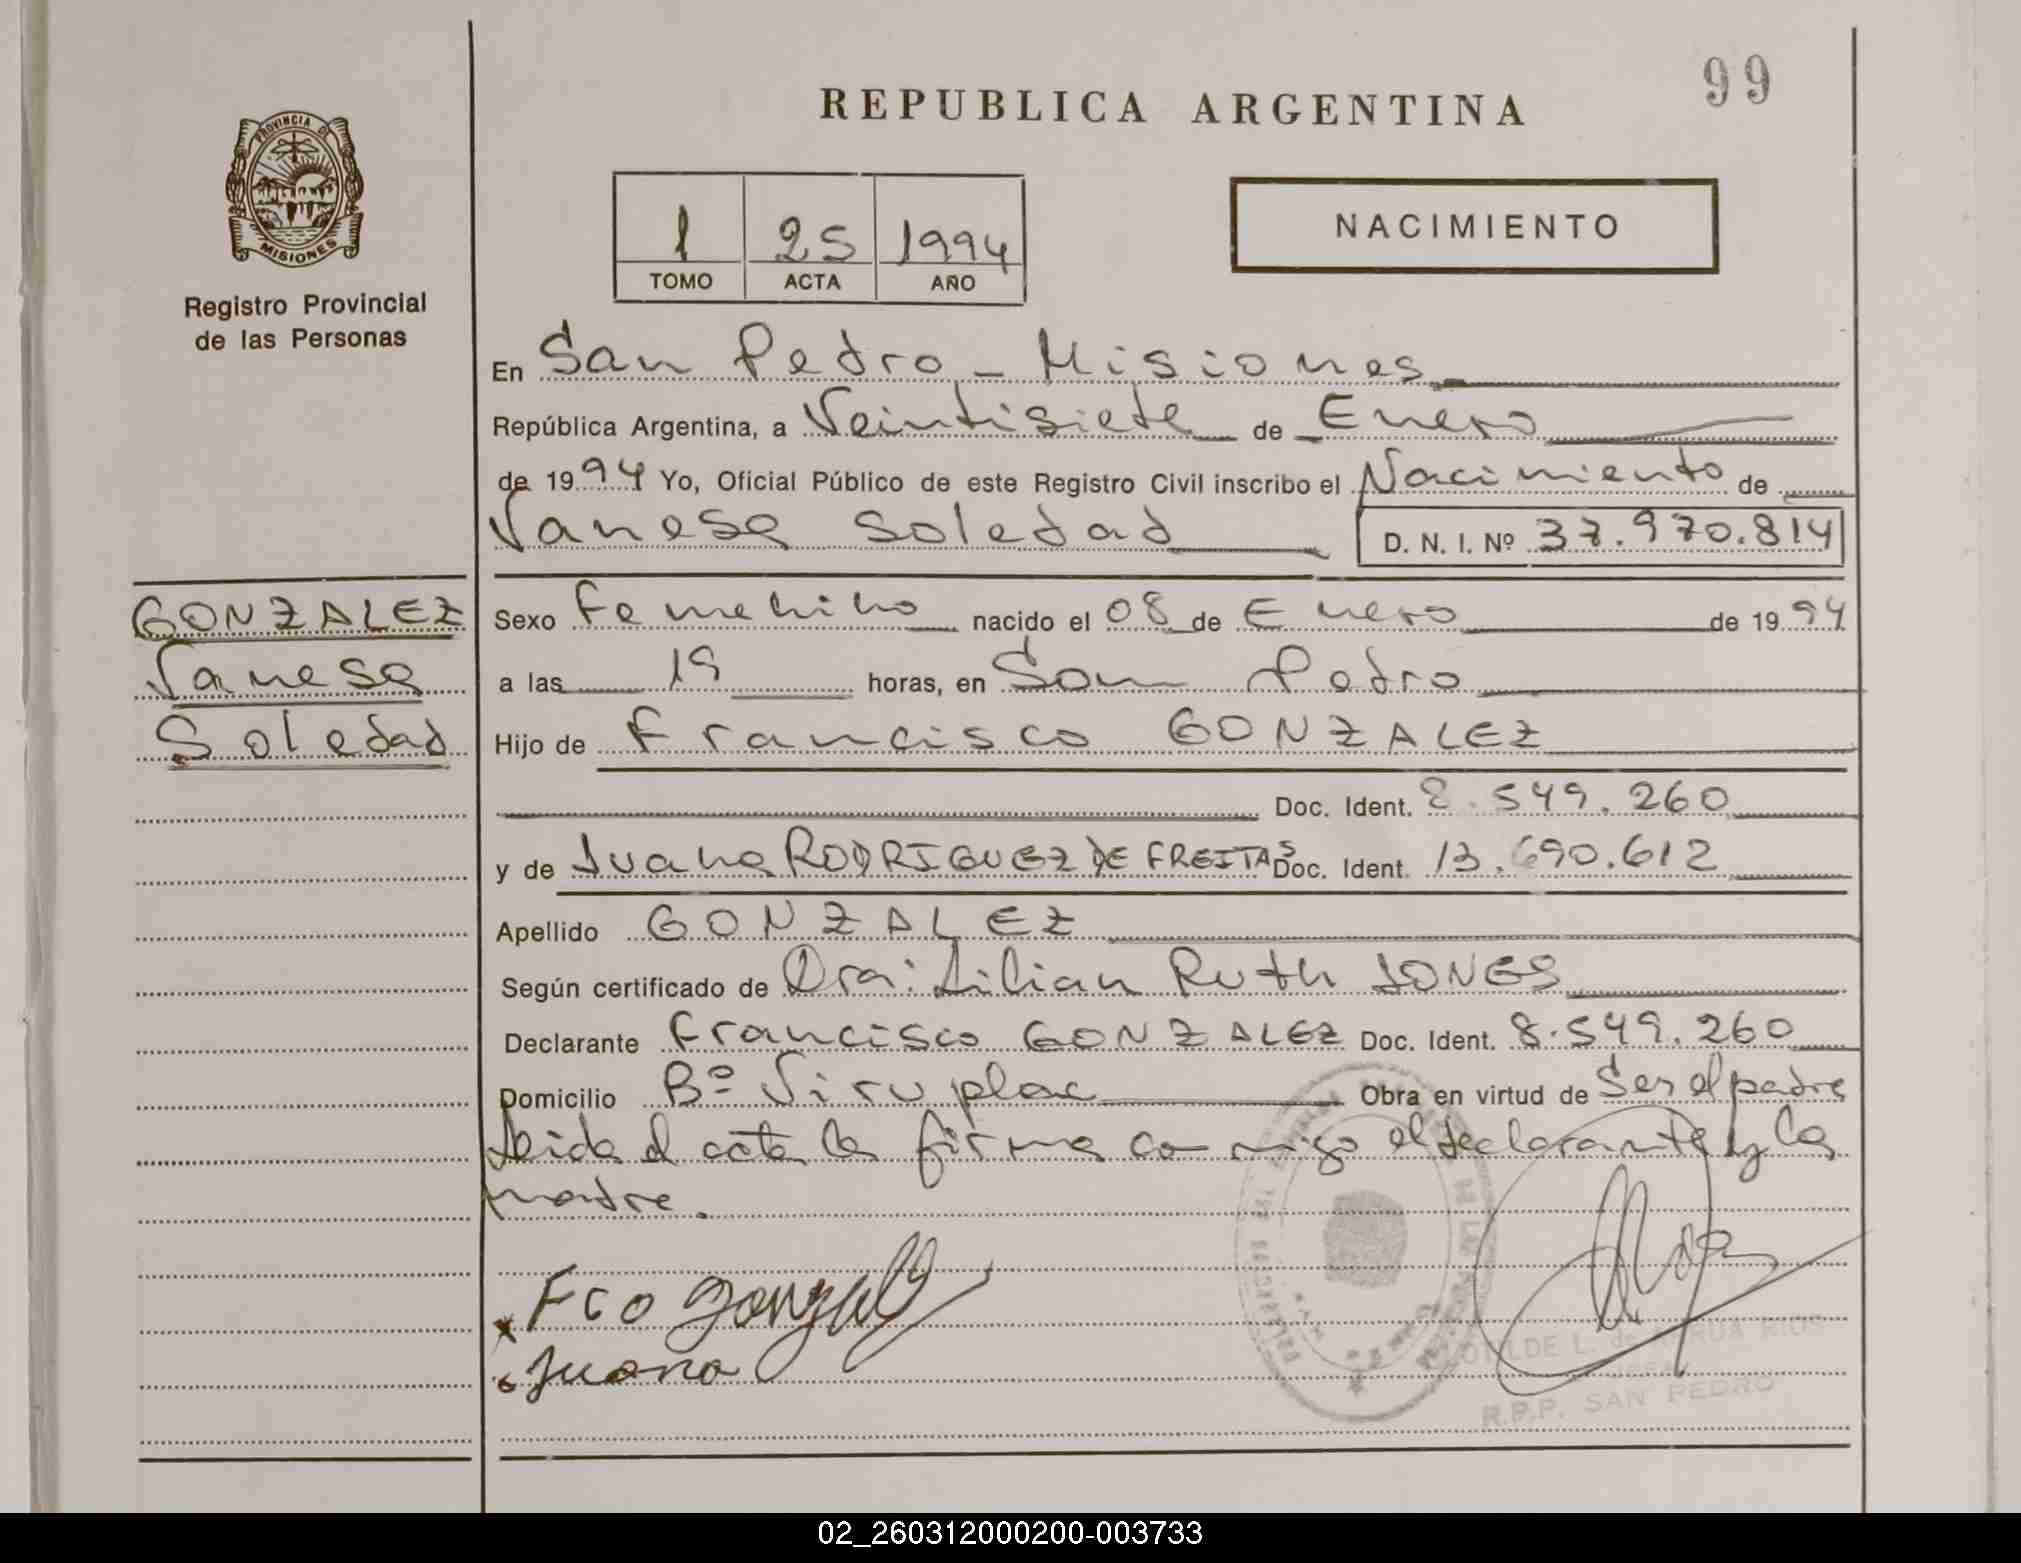 99
REPUBLICA ARGENTINA
PROVINCIA DE
MISIONES
Registro Provincial
de las Personas
1 25 1994
TOMO ACTA AÑO
NACIMIENTO
En San Pedro - Misiones
República Argentina, a Veintisiete de Enero
de 1994 Yo, Oficial Público de este Registro Civil inscribo el Nacimiento de
Vanesa Soledad D. N. I. Nº 37.970.814
GONZALEZ
Vanesa
Soledad
Sexo Femenino nacido el 08 de Enero de 1994
a las 19 horas, en San Pedro
Hijo de Francisco GONZALEZ
Doc. Ident. 8.549.260
y de Juana RODRIGUEZ DE FREITAS Doc. Ident. 13.690.612
Apellido GONZALEZ
Según certificado de Dra: Lilian Ruth JONES
Declarante Francisco GONZALEZ Doc. Ident. 8.549.260
Domicilio Bº Viru plac Obra en virtud de Ser el padre
Leida el acta la firma conmigo el declarante y la
madre.
Fco Gonzalez
Juana
L. de RIOS
R.P.P. SAN PEDRO
02_260312000200-003733